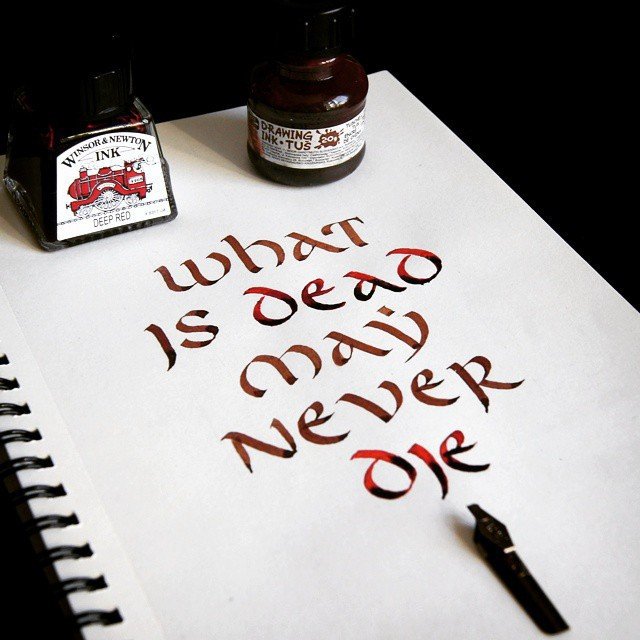 WINSOR & NEWTON
INK
DEEP RED
DRAWING
INK·TUS
What
is dead
may
never
die